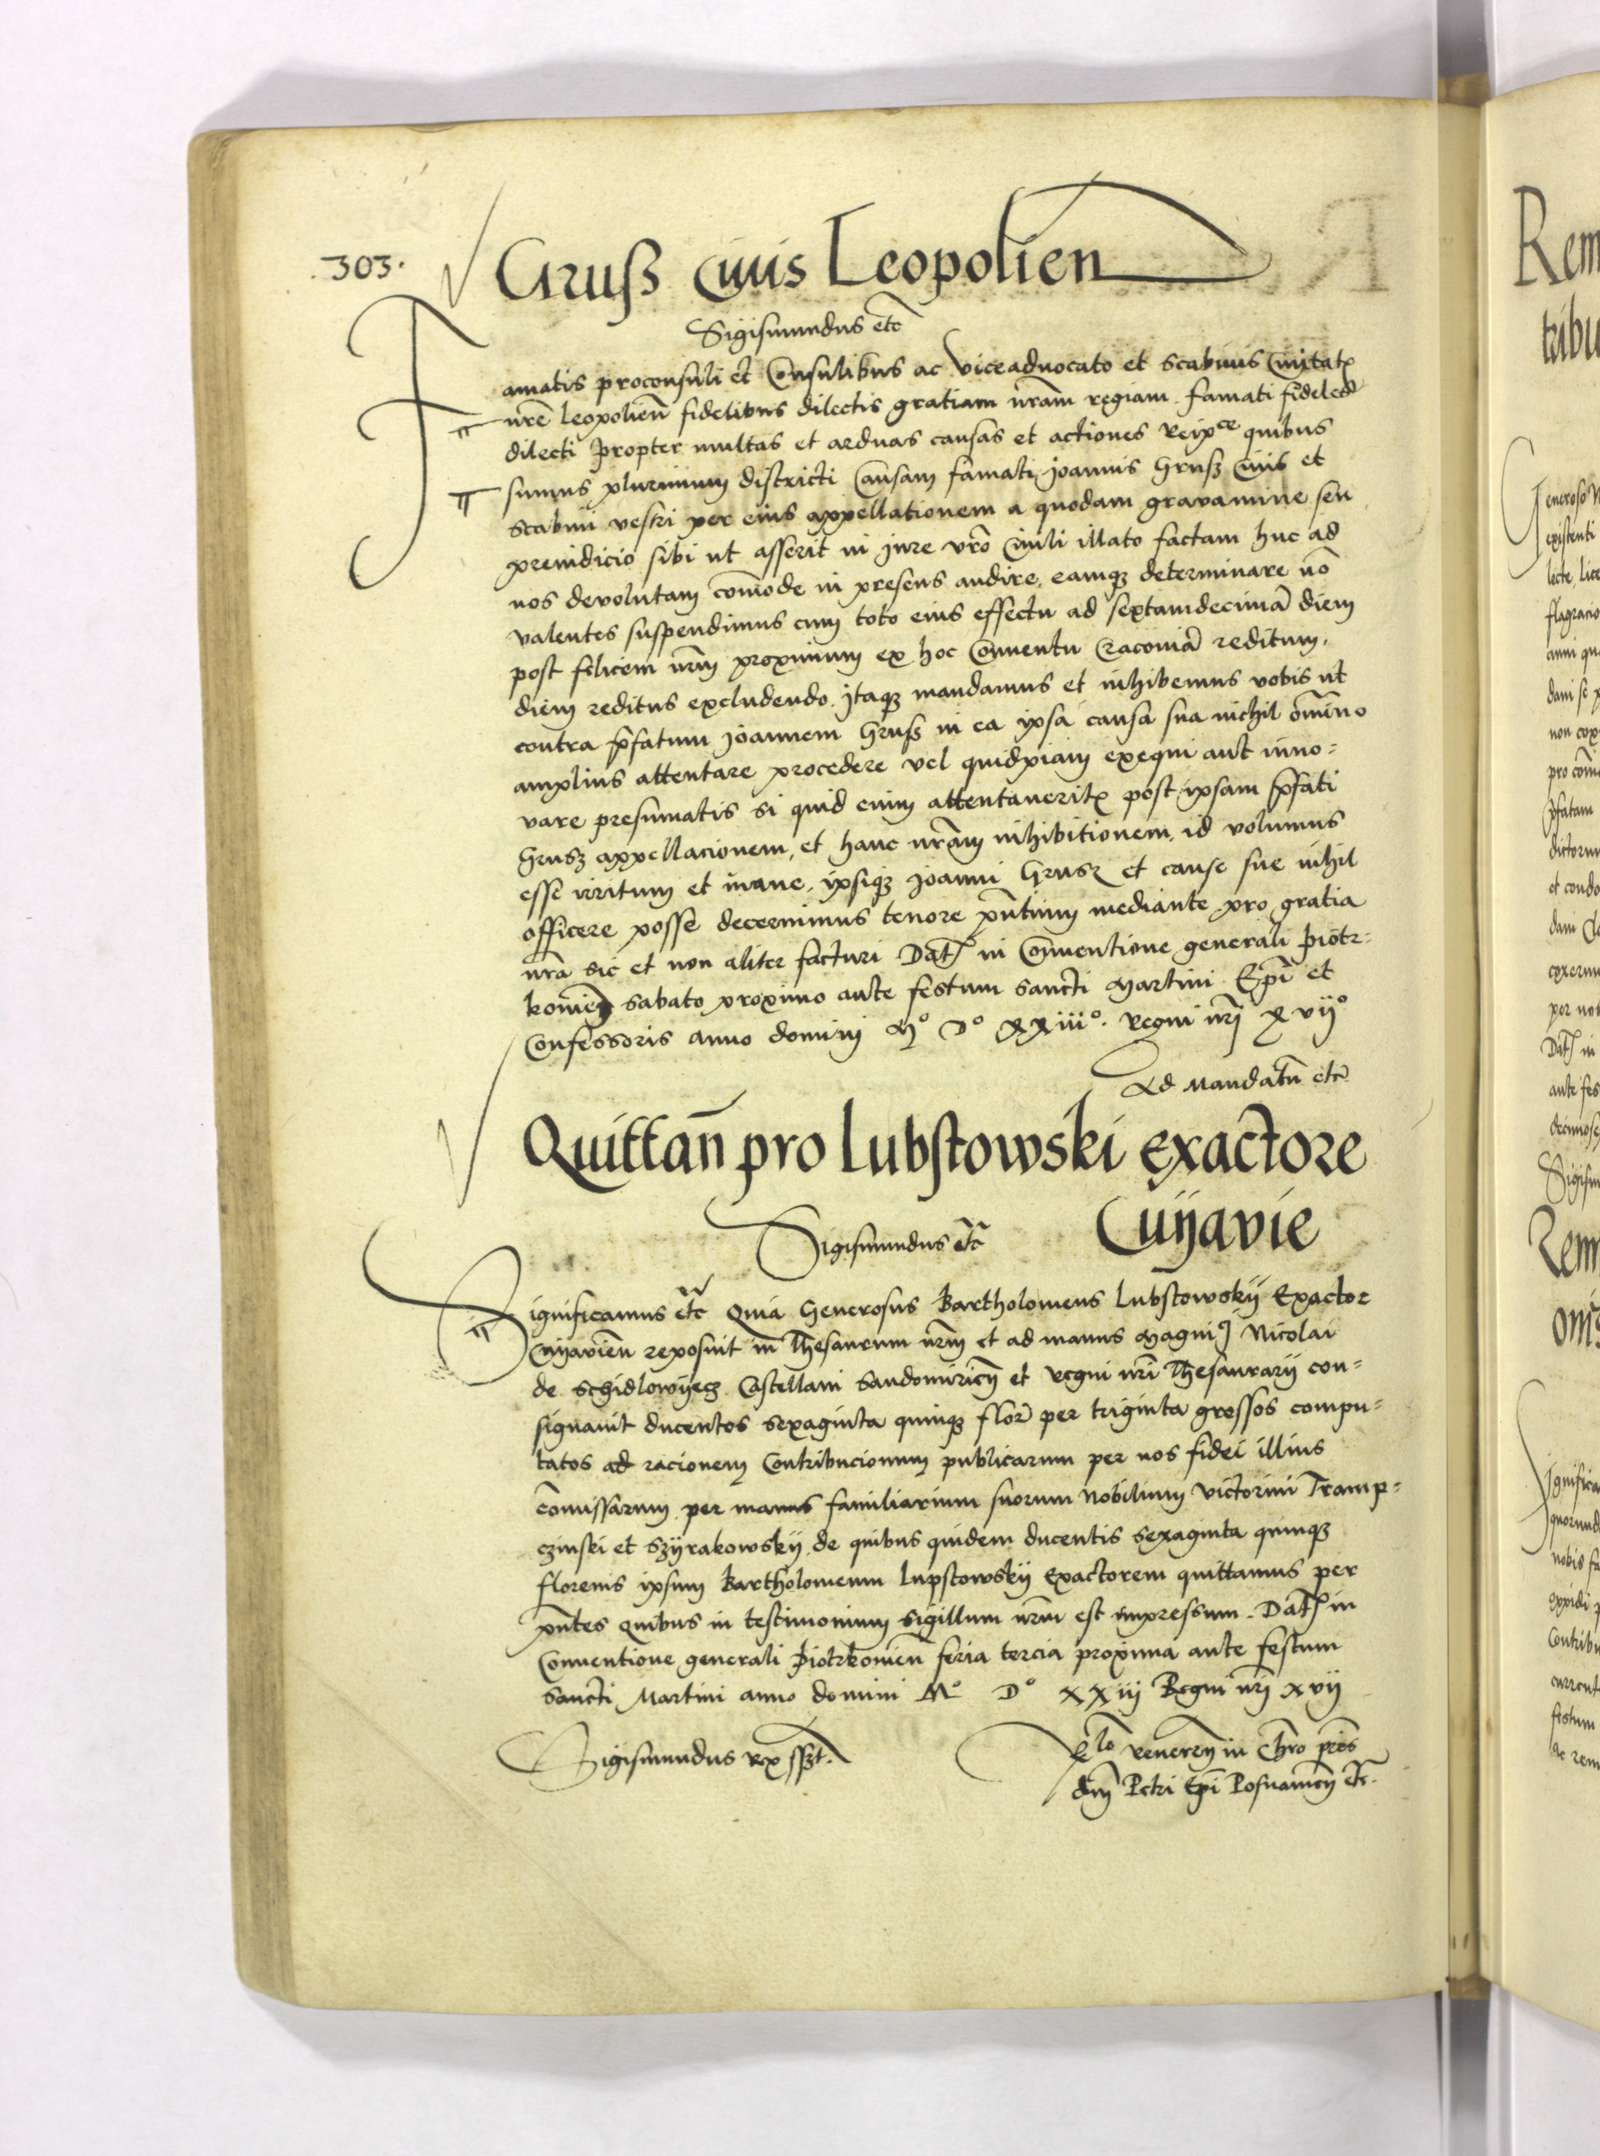 303.
Gruß civis Leopolien
Sigismundus etc
Famatis proconsuli et Consulibus ac Viceadvocato et scabinis Civitatis
nre Leopolien fidelibus dilectis gratiam nram regiam. famati fideles
dilecti Propter multas et arduas causas et actiones Reipce quibus
sumus plurimum districti Causam famati Joannis Gruß Civis et
scabini vestri per eius appellationem a quodam gravamine seu
preiudicio sibi ut asserit in jure vro Civili illato factam huc ad
nos devolutam comode in presens audire, eamq determinare no
valentes suspendimus cum toto eius effectu ad septamdecima diem
post felicem nrm proximum ex hoc Conventu Cracovia reditum,
diem reditus excludendo. Itaq mandamus et inhibemus vobis ut
contra pfatum Joannem Gruß in ea ipsa causa sua nichil omnino
amplius attentare procedere vel quidpiam exequi aut inno=
vare presumatis si quid enim attentaveritis post ipsam pfati
Grusz appellacionem, et hanc nram inhibitionem, id volumus
esse irritum et inane, ipsiq Joanni Grusz et cause sue nihil
officere posse decernimus tenore pntium mediante pro gratia
nra sic et non aliter facturi Dat in Conventione generali Piotr=
kovien sabato proximo ante festum sancti Martini Epi et
Confessoris anno domini Mo Do XXiiio. Regni nri Xviio
Ad Mandatu etc
Quittan pro Lubstowski exactore
Cuyavie
Sigismundus etc
Significamus etc Quia Generosus Bartholomeus Lubstowskij Exactor
Cuyavien reposuit in Thesaurum nrm et ad manus Magnici Nicolai
de Schidlowyecz Castellani Sandomirien et Regni nri Thesaurarij con=
signavit ducentos sexaginta quinq flor per triginta grossos compu=
tatos ad racionem Contribucionum publicarum per nos fidei illius
comissarum per manus familiarium suorum Nobilium Victorini Tramp=
czinski et Szyrakowskij de quibus quidem ducentis sexaginta quinq
florenis ipsum Bartholomeum Lupstowskij Exactorem quittamus per
pntes Quibus in testimonium sigillum nrm est impressum. Dat in
Conventione generali Piotrkovien feria tercia proxima ante festum
sancti Martini anno domini Mo Do XXiij Regni nri xvij
Sigismundus Rx sszt.
Rlo Reveren in Chro pris
dni Petri Epi Posnanien etc.